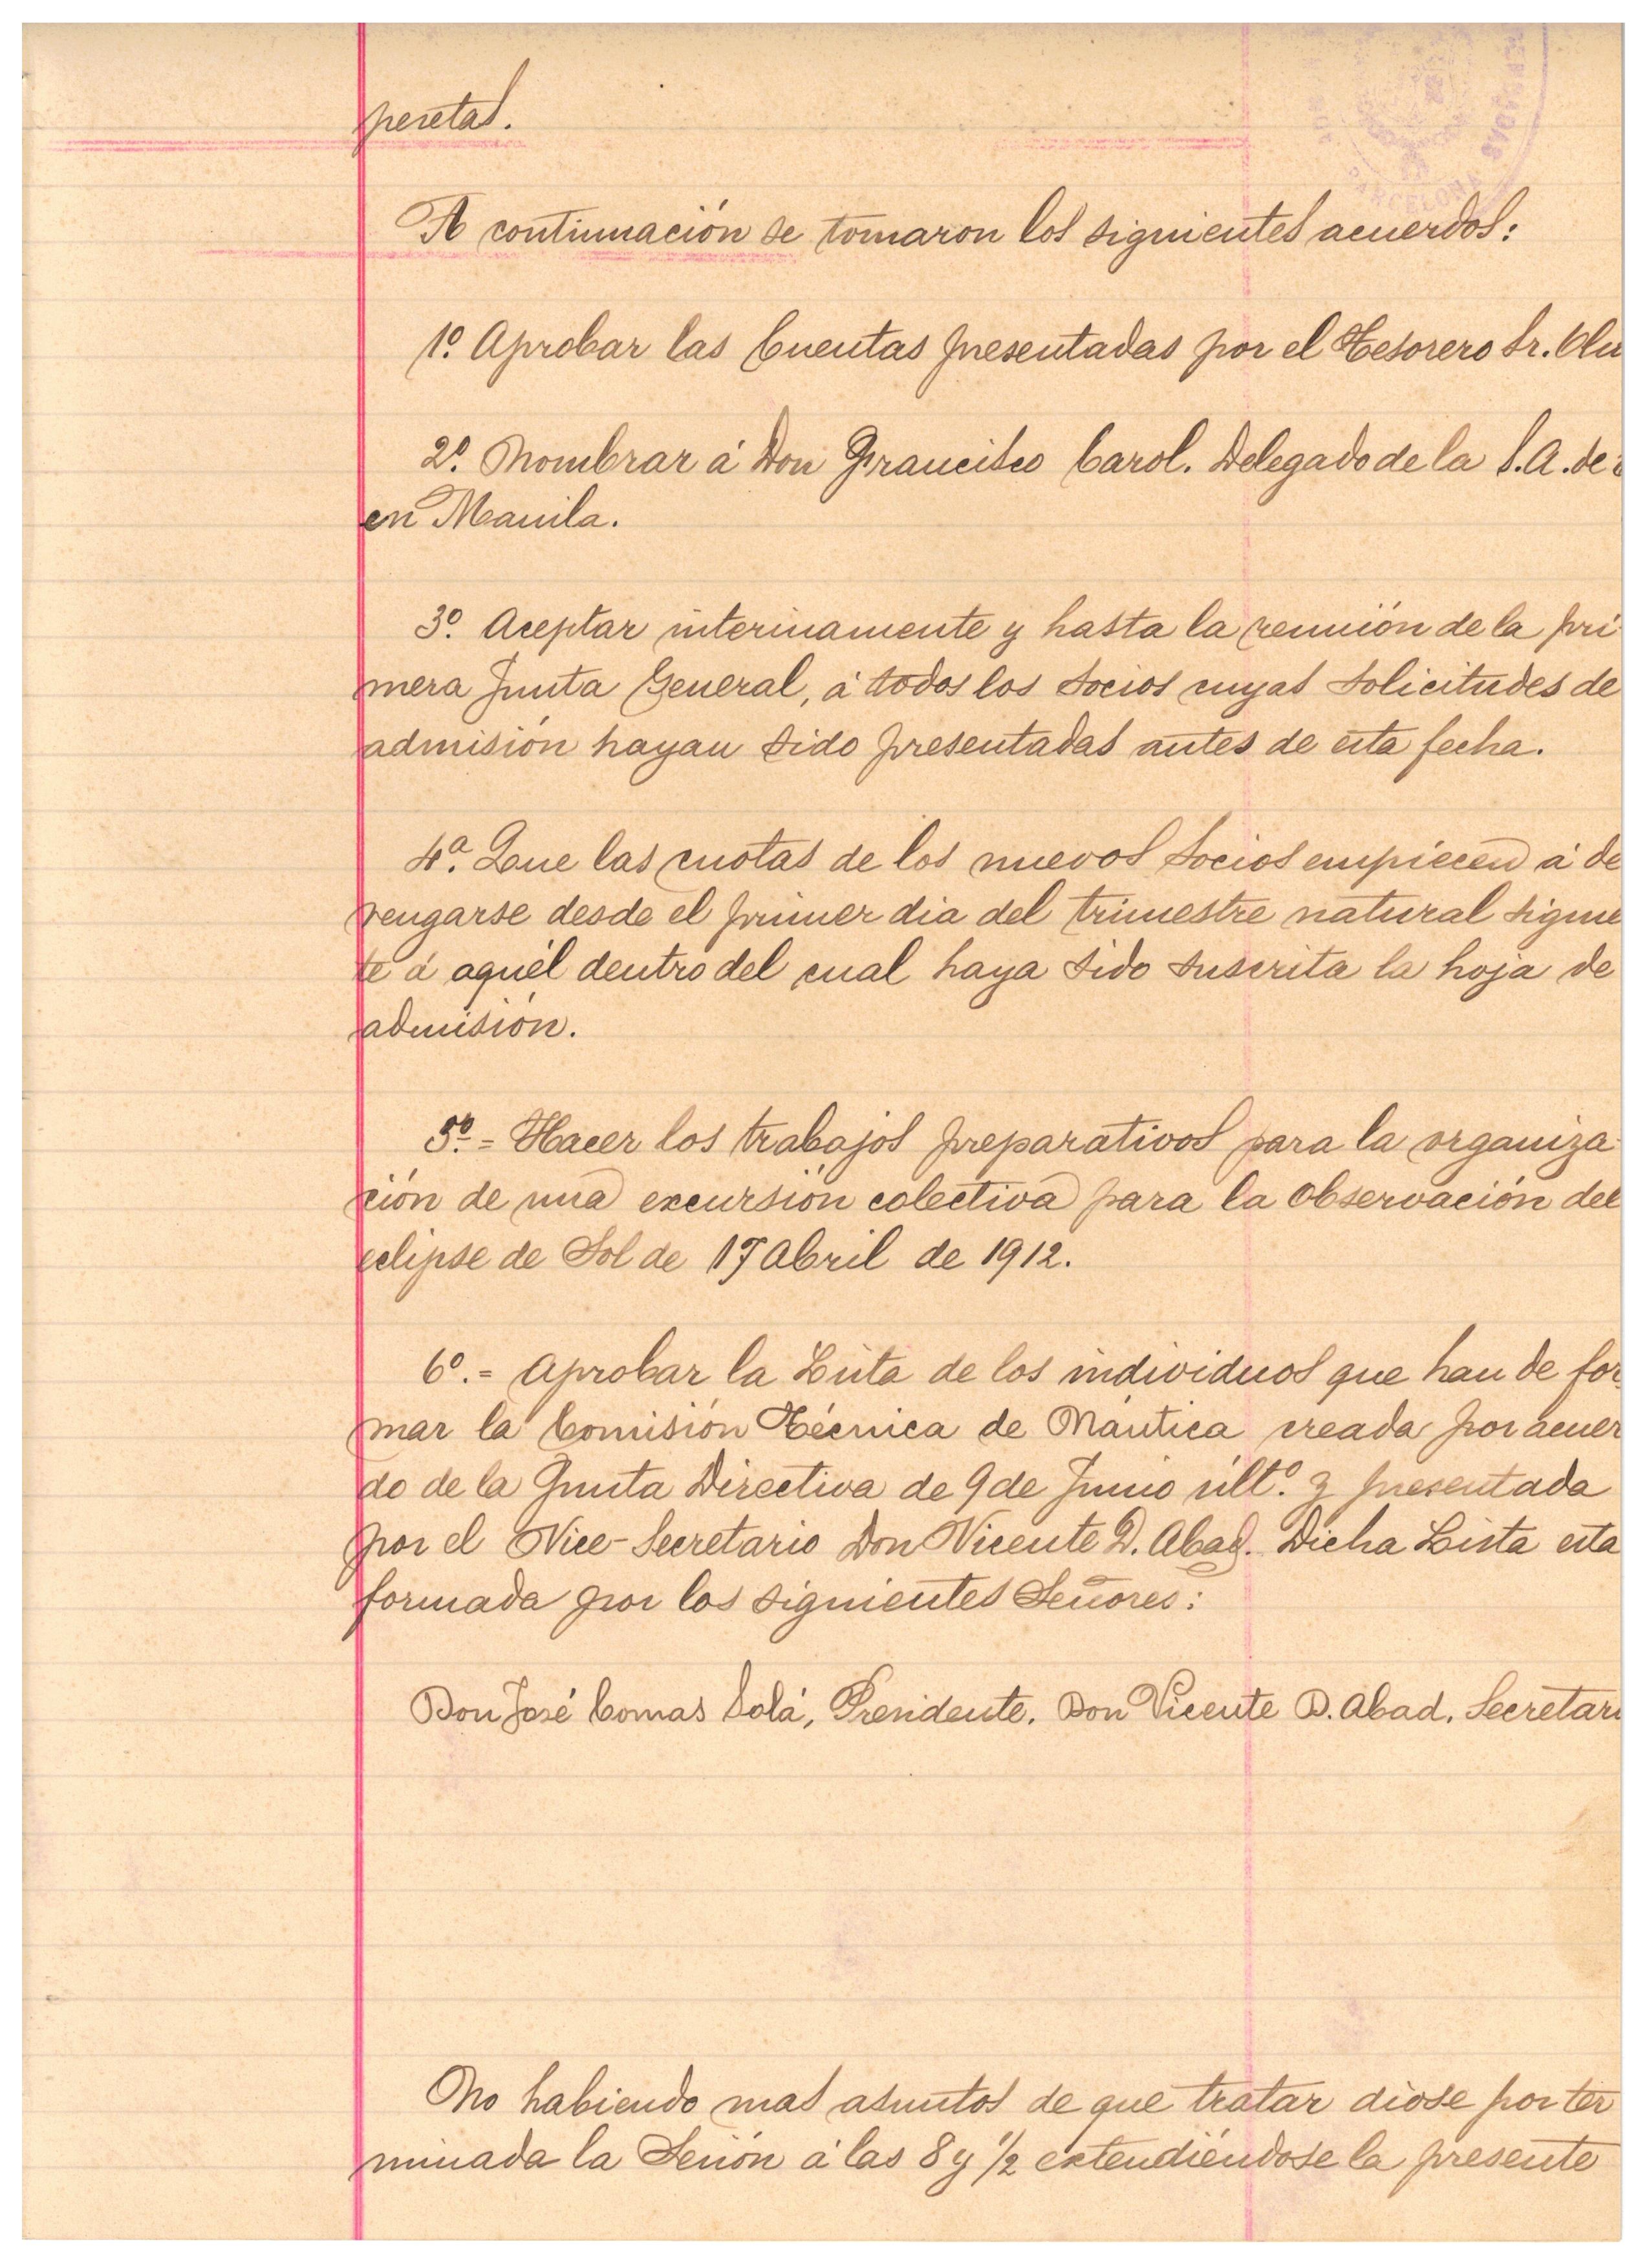 pesetas.
A continuación se tomaron los siguientes acuerdos:
1º. Aprobar las Cuentas presentadas por el Tesorero Sr.
2º. Nombrar á Don Francisco Carol. Delegado de la S.A. de
en Manila.
3º. Aceptar interinamente y hasta la reunión de la pri
mera Junta General, á todos los socios cuyas solicitudes de
admisión hayan sido presentadas antes de esta fecha.
4º. Que las cuotas de los nuevos socios empiecen á de
vengarse desde el primer dia del trimestre natural siguie
te á aquél dentro del cual haya sido suscrita la hoja de
admisión.
5º.= Hacer los trabajos preparativos para la organiza
ción de una excursión colectiva para la Observación del
eclipse de Sol de 17 Abril de 1912.
6º.= Aprobar la Lista de los individuos que han de for
mar la Comisión Técnica de Náutica creada por acuer
do de la Junta Directiva de 9 de Junio últº. y presentada
por el Vice-Secretario Don Vicente D. Abad. Dicha Lista esta
formada por los siguientes Señores:
Don José Comas Solá, Presidente. Don Vicente D. Abad. Secretari
No habiendo mas asuntos de que tratar diose por ter
minada la Sesión á las 8 y 1/2 extendiéndose la presente